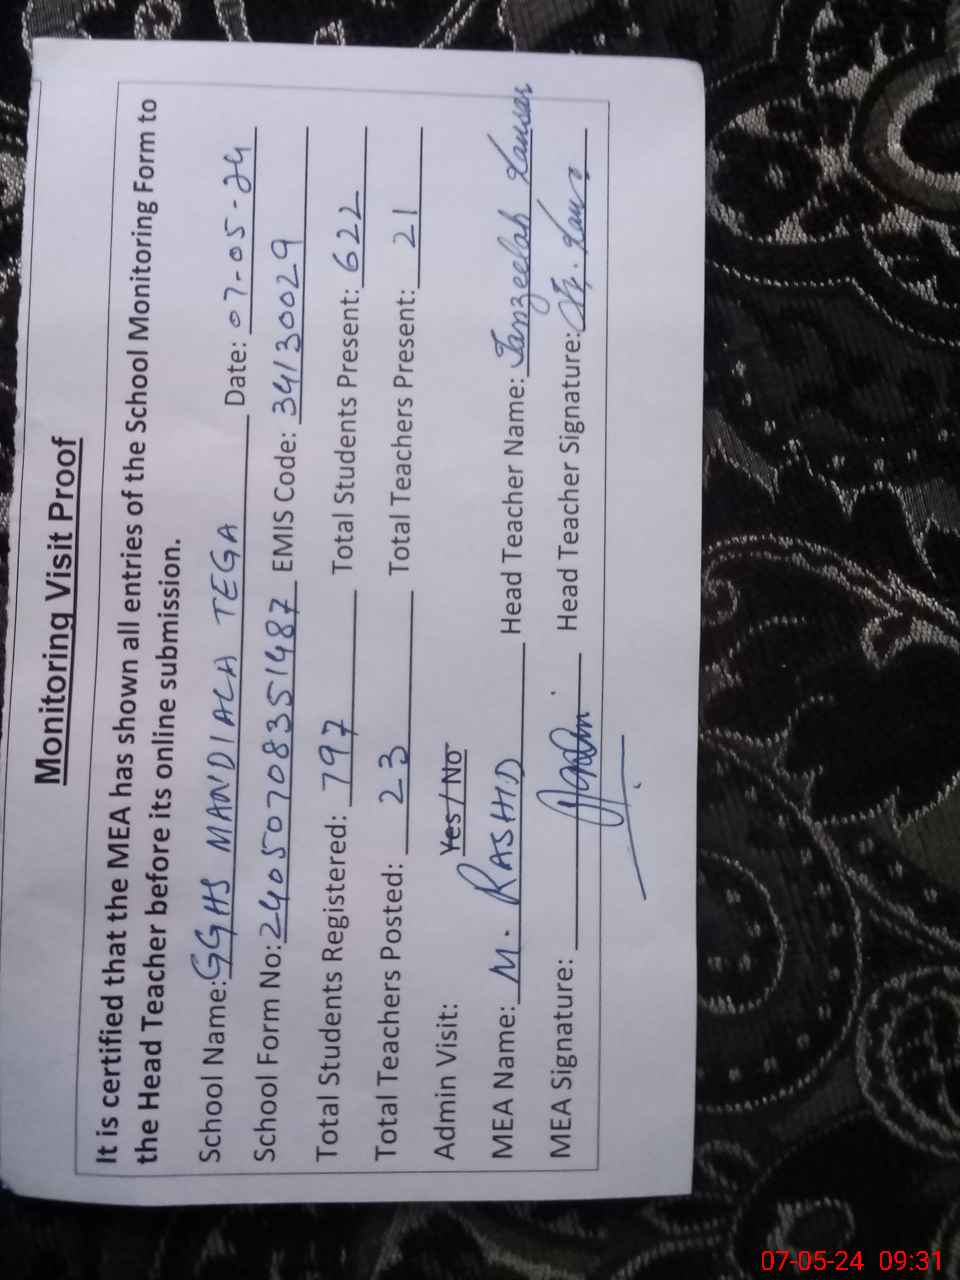 Monitoring Visit Proof
It is certified that the MEA has shown all entries of the School Monitoring Form to
the Head Teacher before its online submission.
School Name: GGHS MANDIALA TEGA Date: 07-05-24
School Form No: 24050708351487 EMIS Code: 34130029
Total Students Registered: 797 Total Students Present: 622
Total Teachers Posted: 23 Total Teachers Present: 21
Admin Visit: Yes / No
MEA Name: M. RASHID Head Teacher Name: Tanzeelah Kausar
MEA Signature: Head Teacher Signature:
07-05-24 09:31